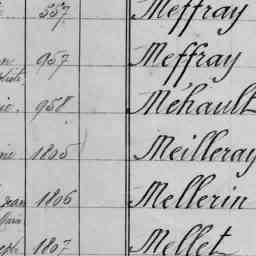 557 Meffray
957 Meffray
958 Méhault
1805 Meilleray
jean 1806 Mellerin
1807 Mellet